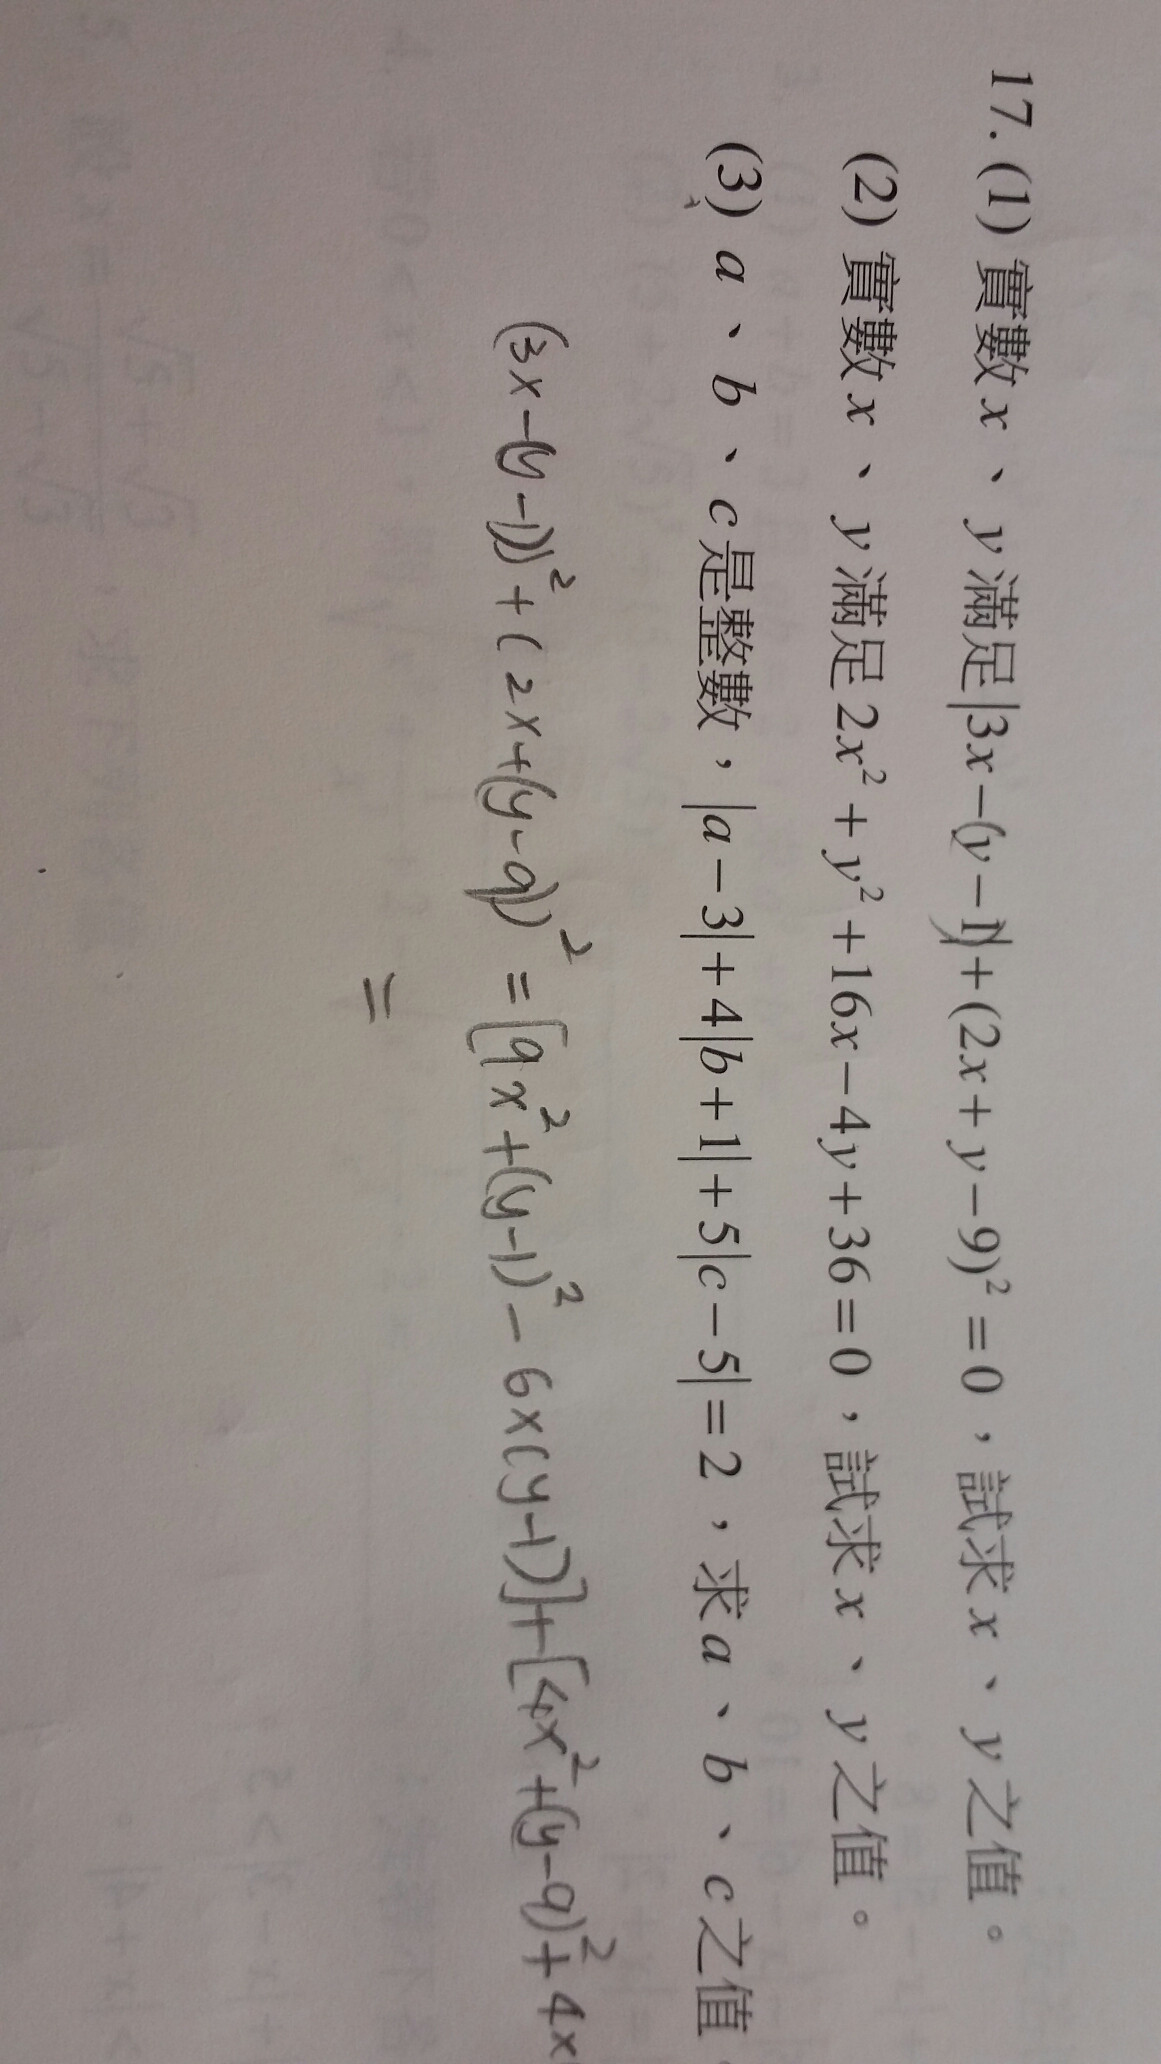 17. (1) 實數x、y滿足|3x-(y-1)|+(2x+y-9)²=0,試求x、y之值。
(2) 實數x、y滿足2x²+y²+16x-4y+36=0,試求x、y之值。
(3) a、b、c是整數,|a-3|+4|b+1|+5|c-5|=2,求a、b、c之值。
(3x-(y-1))²+(2x+(y-9))²=[9x²+(y-1)²-6x(y-1)]+[4x²+(y-9)²+4x
=